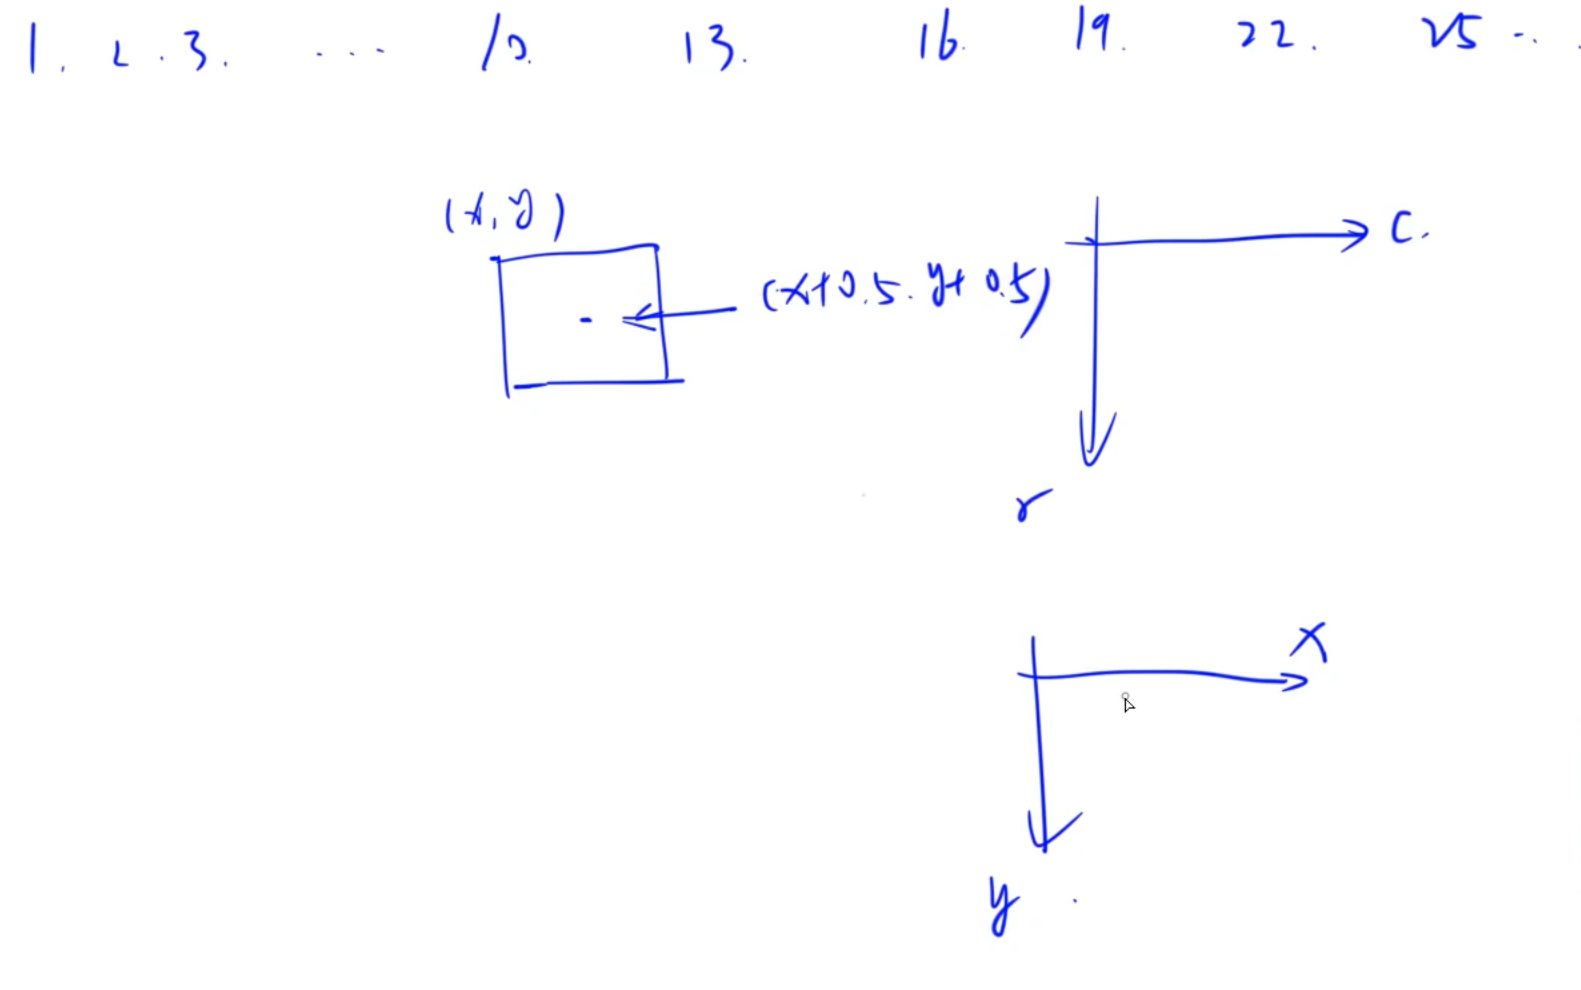 1. 2. 3. ... 10. 13. 16. 19. 22. 25 ...
(x, y)
c.
(x+0.5. y+0.5)
r
x
y